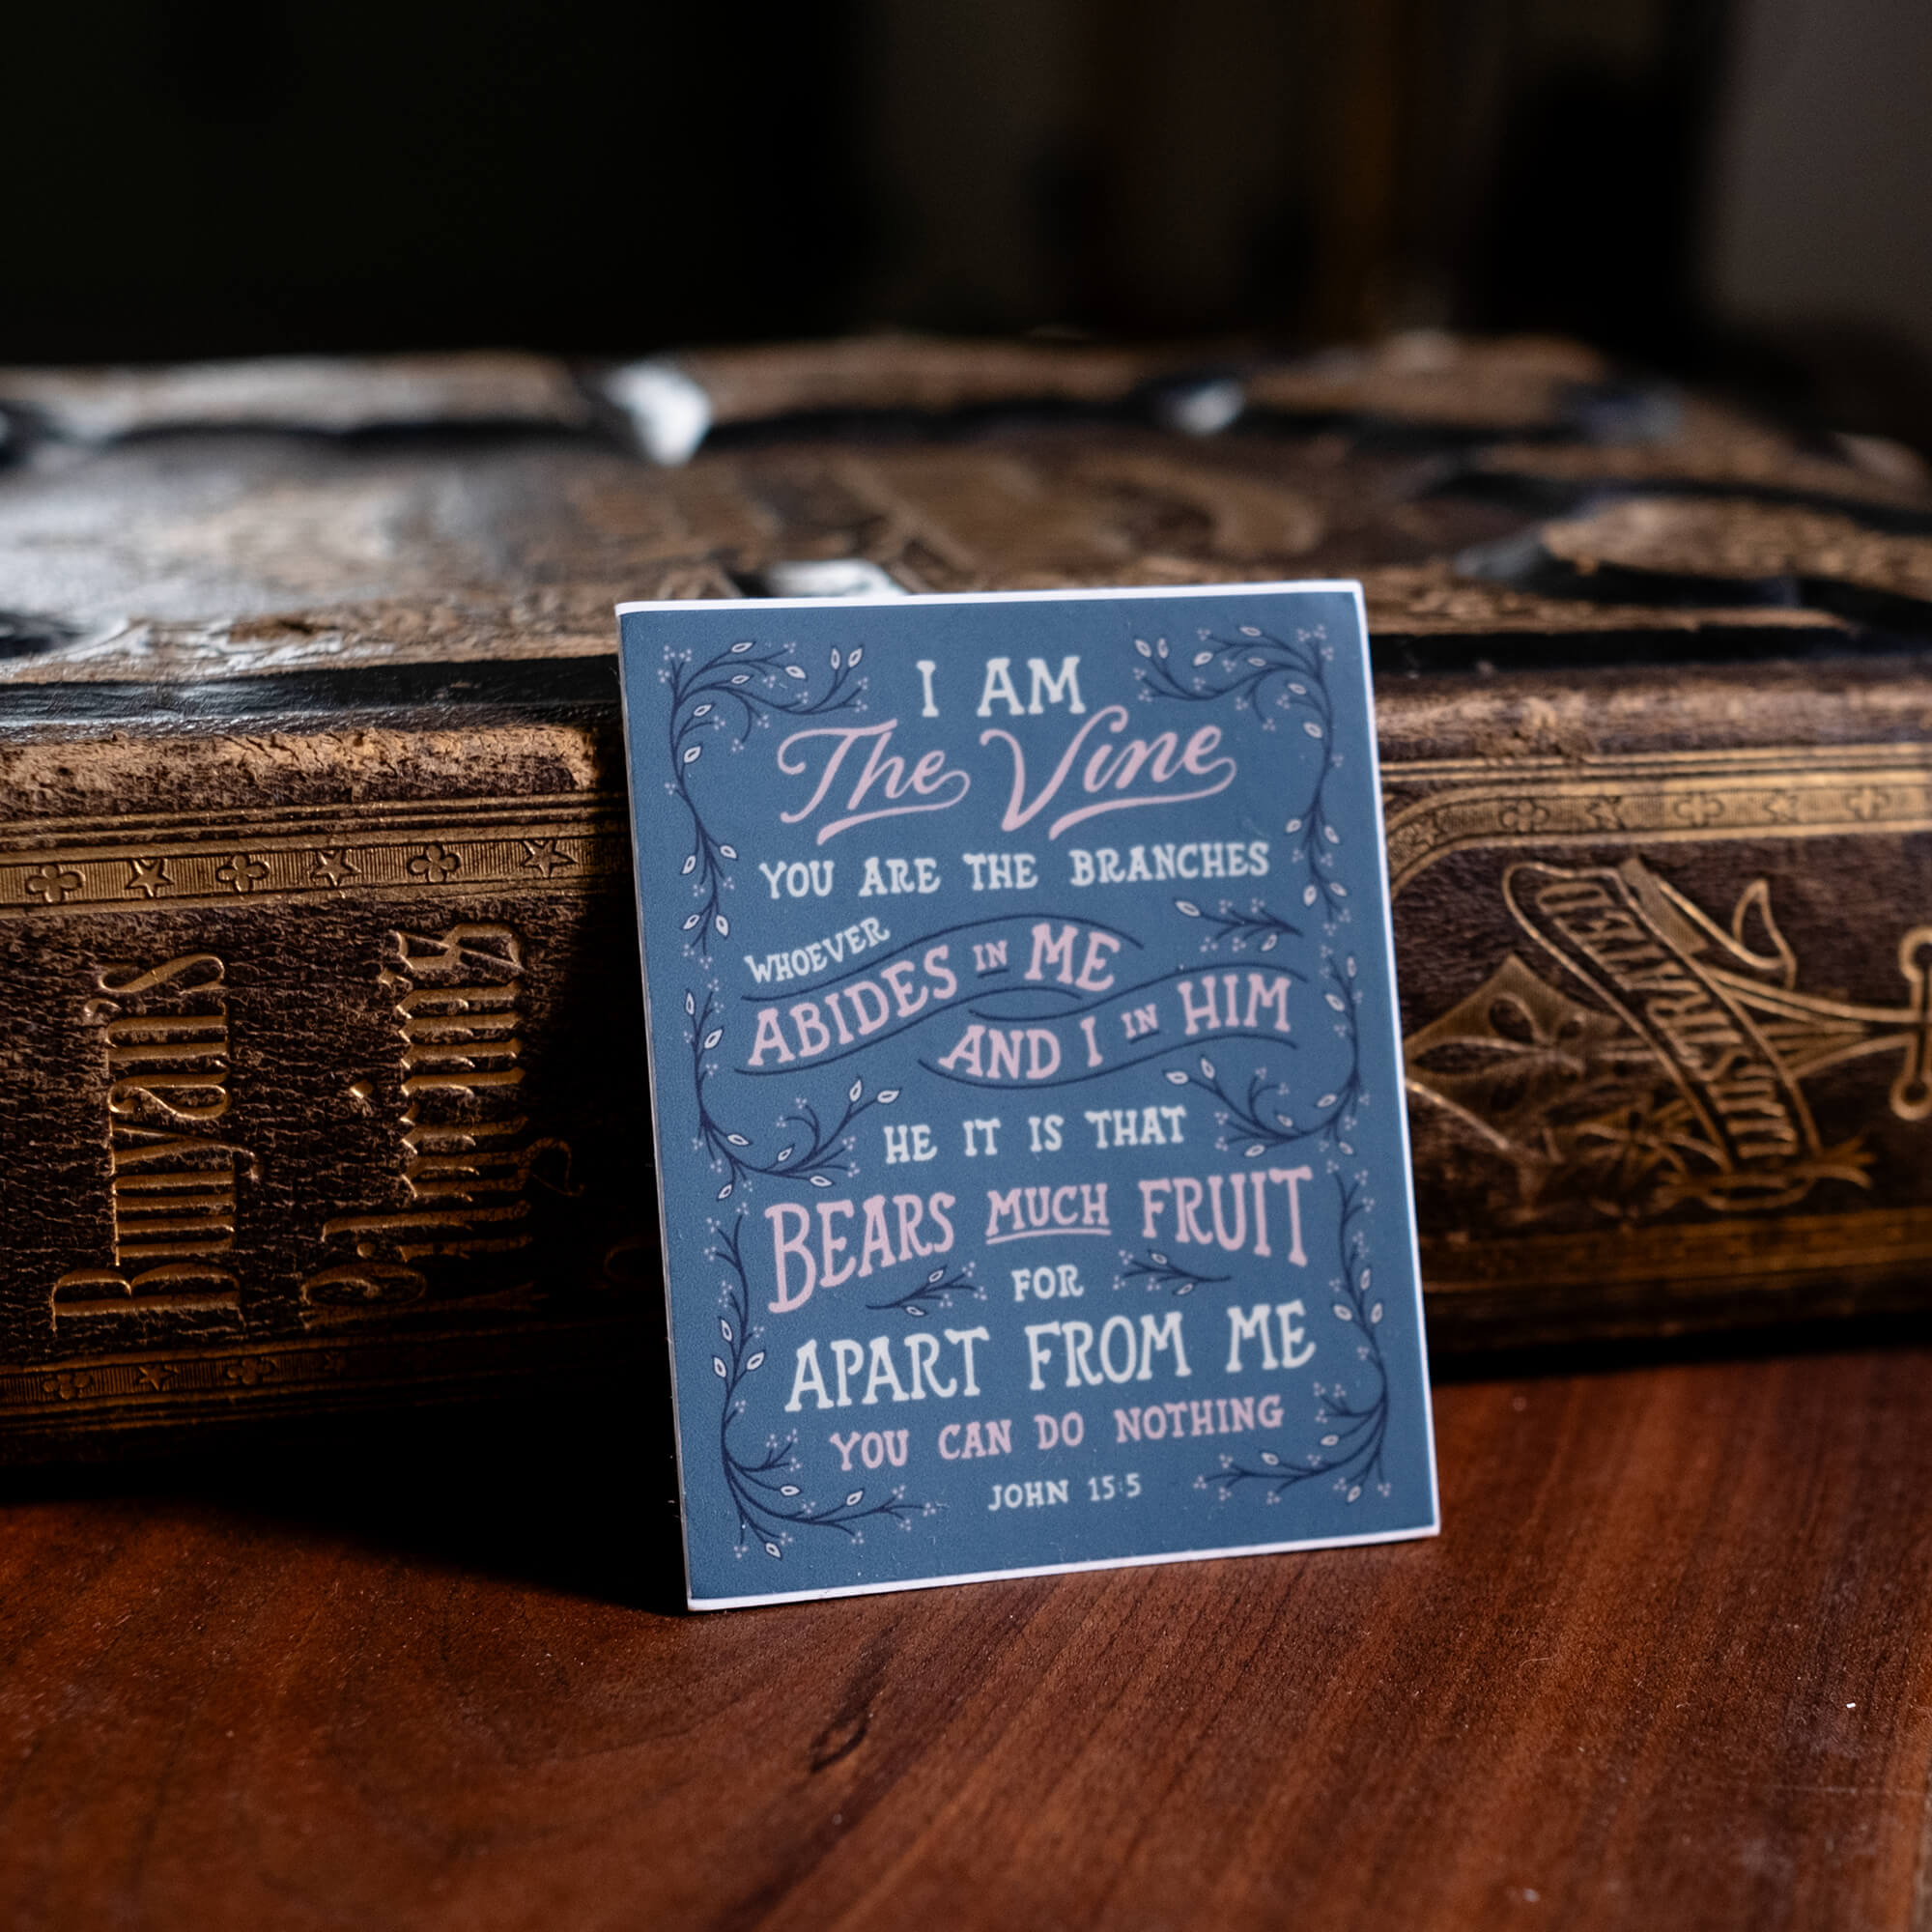 I AM
The Vine
YOU ARE THE BRANCHES
WHOEVER
ABIDES IN ME
AND I IN HIM
HE IT IS THAT
BEARS MUCH FRUIT
FOR
APART FROM ME
YOU CAN DO NOTHING
JOHN 15:5
Bunyan's
ILLUSTRATED